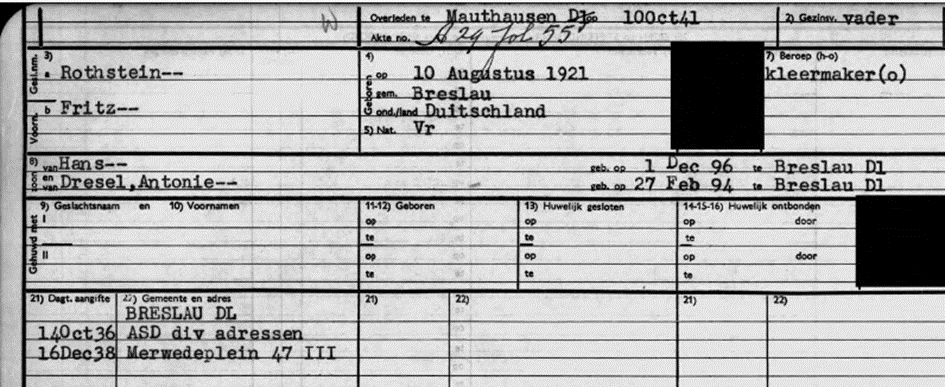 W Overleden te Mauthausen Dl op 10Oct41 2) Gezinsv. vader
Akte no. A 29 fol. 55
Gesl.nm. 3) a Rothstein-- Geboren 4) op 10 Augustus 1921 7) Beroep (h-o)
kleermaker(o)
gem. Breslau
Voorn. b Fritz-- ond./land Duitschland
5) Nat. Vr
8) zoon van Hans-- geb. op 1 Dec 96 te Breslau Dl
en van Dresel,Antonie-- geb. op 27 Feb 94 te Breslau Dl
Gehuwd met 9) Geslachtsnaam en 10) Voornamen 11-12) Geboren 13) Huwelijk gesloten 14-15-16) Huwelijk ontbonden
I op op op door
te te te
II op op op door
te te te
21) Dagt. aangifte 22) Gemeente en adres 21) 22) 21) 22)
BRESLAU DL
14Oct36 ASD div adressen
16Dec38 Merwedeplein 47 III